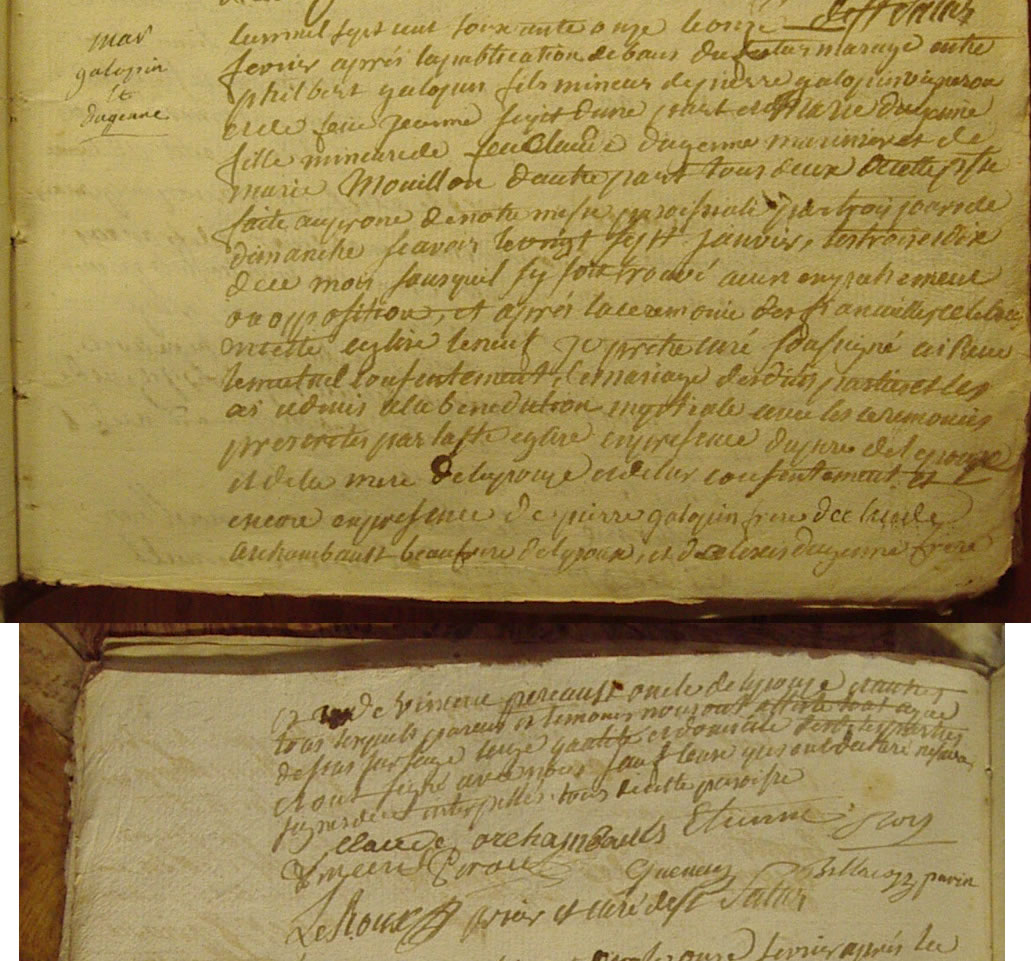 mar
galopin
et
dugenne
de st Satur
Lan mil sept cent soixante onze le onze
fevrier aprés la publication de bans du futur mariage entre
philbert galopin fils mineur de pierre galopin vigneron
et de feüe jeanne d'une part et Marie dugenne
fille mineure de feu Claude dugenne marinier et de
marie Mouillon d'autre part tous deux de cette psse
faite au prone de notre messe paroissiale par trois jours de
dimanche scavoir le vingt sept janvier, les trois et dix
de ce mois sans quil sy soit trouvé aucun empechement
ou opposition, et aprés la ceremonie des fiancailles celebrée
en cette eglise le neuf je pretre curé soussigné ai recu
le mutuel consentement, le mariage desdites parties et les
ai admis a la benediction nuptiale avec les ceremonies
prescrites par la ste eglise en presence du pere de lepoux
et de la mere de lepouse et de leur consentement et
encore en presence de pierre galopin frere de claude
archambault beaufrere de lepoux, et de alexis dugenne frere
et de vincent pereault oncle de lepouse et autres
tous lesquels parens et temoins nous ont attesté tout ce que
dessus sur lage qualité et domicile desdites parties
et ont signé avec nous sauf ceux qui ont declaré ne scavoir
signer de ce interpellés tous de cette paroisse
claude archambaults Etienne
vincent Peraut
LeRoux prieur et curé de st Satur
fevrier aprés la